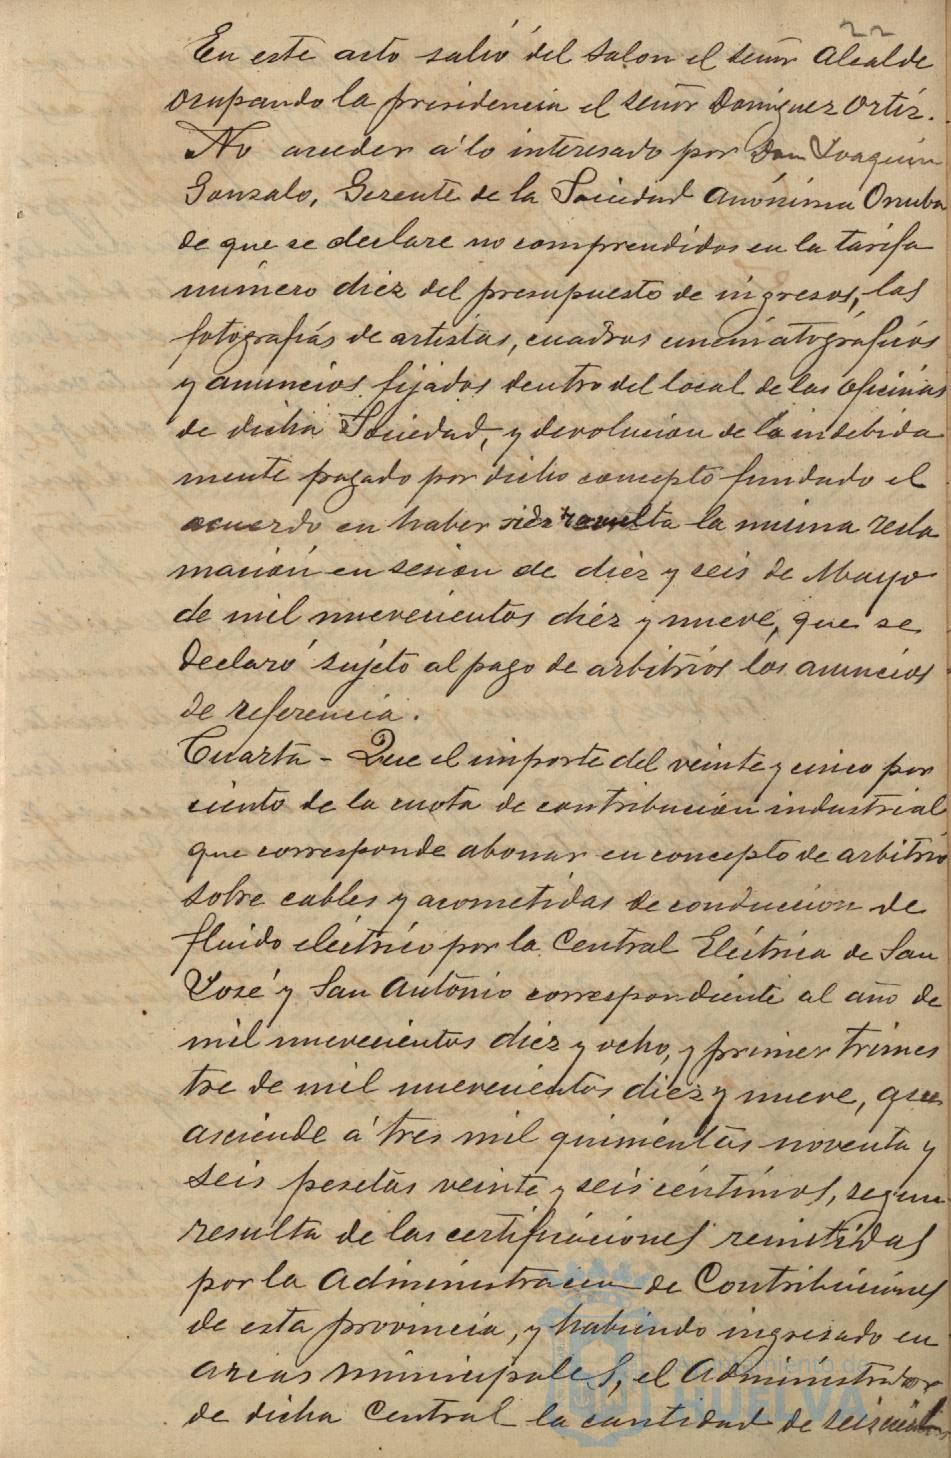 22
En este acto salió del salon el señor Alcalde
ocupando la presidencia el señor Dominguez Ortíz.
No acceder á lo interesado por Don Joaquin
Gonzalo, Gerente de la Sociedad Anónima Onuba
de que se declare no comprendidos en la tarifa
número diez del presupuesto de ingresos, las
fotografías de artistas, cuadros cinematográficos
y anuncios fijados dentro del local de las oficinas
de dicha Sociedad, y devolucion de lo indebida
mente pagado por dicho concepto fundado el
acuerdo en haber sido resuelta la misma recla
macion en sesion de diez y seis de Mayo
de mil nuevecientos diez y nueve, que se
declaró sujeto al pago de arbitrios los anuncios
de referencia.
Cuarta - Que el importe del veinte y cinco por
ciento de la cuota de contribucion industrial
que corresponde abonar en concepto de arbitrio
sobre cables y acometidas de conduccion de
fluido eléctrico por la Central Eléctrica de San
José y San Antonio correspondiente al año de
mil nuevecientos diez y ocho, y primer trimes
tre de mil nuevecientos diez y nueve, que
asciende á tres mil quinientas noventa y
seis pesetas veinte y seis céntimos, segun
resulta de las certificaciones remitidas
por la Administracion de Contribuciones
de esta provincia, y habiendo ingresado en
arcas municipales, el Administrador
de dicha Central la cantidad de seiscientas
Ayuntamiento de
HUELVA